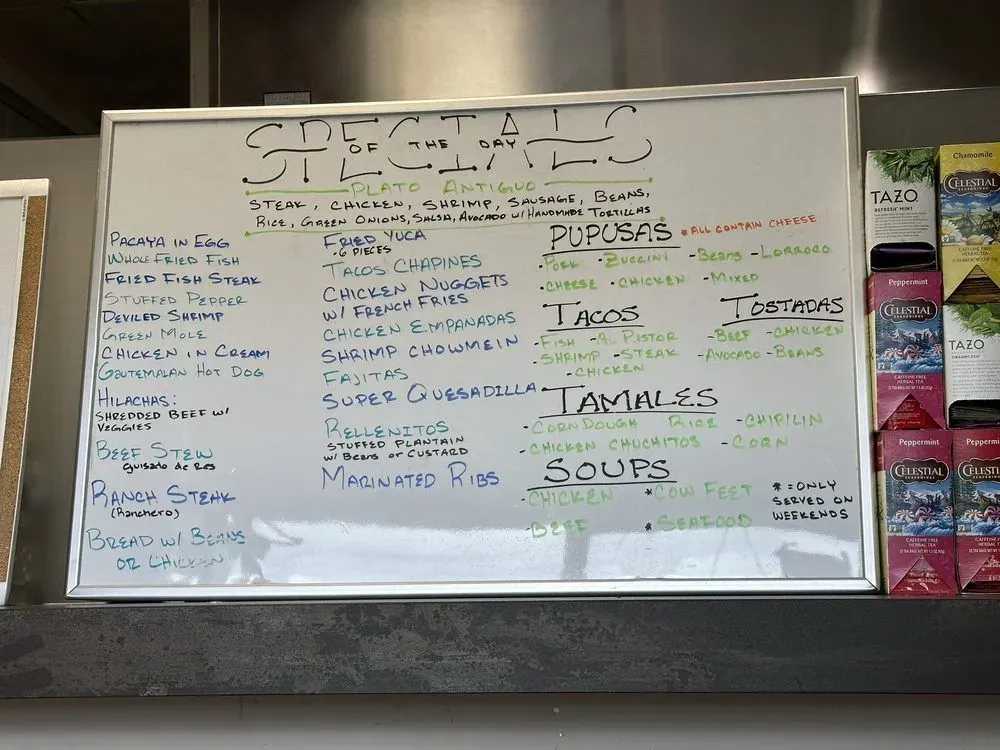 SPECIALS
OF THE DAY
PLATO ANTIGUO
STEAK, CHICKEN, SHRIMP, SAUSAGE, BEANS,
RICE, GREEN ONIONS, SALSA, AVOCADO W/ HANDMADE TORTILLAS
PACAYA IN EGG
WHOLE FRIED FISH
FRIED FISH STEAK
STUFFED PEPPER
DEVILED SHRIMP
GREEN MOLE
CHICKEN IN CREAM
GUTEMALAN HOT DOG
HILACHAS:
SHREDDED BEEF W/
VEGGIES
BEEF STEW
guisado de Res
RANCH STEAK
(Ranchero)
BREAD W/ BEANS
OR CHICKEN
FRIED YUCA
-6 PIECES
TACOS CHAPINES
CHICKEN NUGGETS
W/ FRENCH FRIES
CHICKEN EMPANADAS
SHRIMP CHOWMEIN
FAJITAS
SUPER QUESADILLA
RELLENITOS
STUFFED PLANTAIN
W/ BEANS OR CUSTARD
MARINATED RIBS
PUPUSAS *ALL CONTAIN CHEESE
-PORK -ZUCCINI -BEANS -LORROCO
-CHEESE -CHICKEN -MIXED
TACOS
-FISH -AL PASTOR
-SHRIMP -STEAK
-CHICKEN
TOSTADAS
-BEEF -CHICKEN
-AVOCADO -BEANS
TAMALES
-CORN DOUGH RICE -CHIPILIN
-CHICKEN CHUCHITOS -CORN
SOUPS
-CHICKEN *COW FEET
-BEEF *SEAFOOD
* = ONLY
SERVED ON
WEEKENDS
TAZO
REFRESH MINT
Chamomile
CELESTIAL
SEASONINGS
CAFFEINE FREE
HERBAL TEA
Peppermint
CELESTIAL
SEASONINGS
CAFFEINE FREE
HERBAL TEA
TAZO
ORGANIC ZEN
Peppermint
CELESTIAL
SEASONINGS
CAFFEINE FREE
HERBAL TEA
Peppermint
CELESTIAL
CAFFEINE FREE
HERBAL TEA